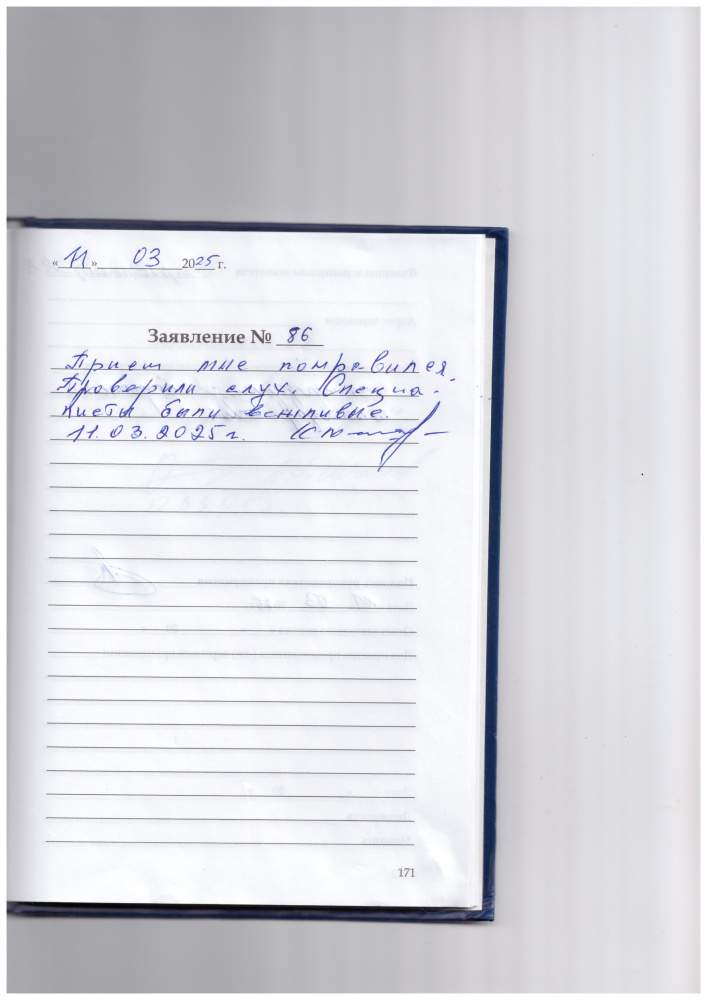 «11» 03 2025 г.
Заявление № 86
Прием мне понравился.
Проверили слух. Специа-
листы были вежливые.
11.03.2025г.
171